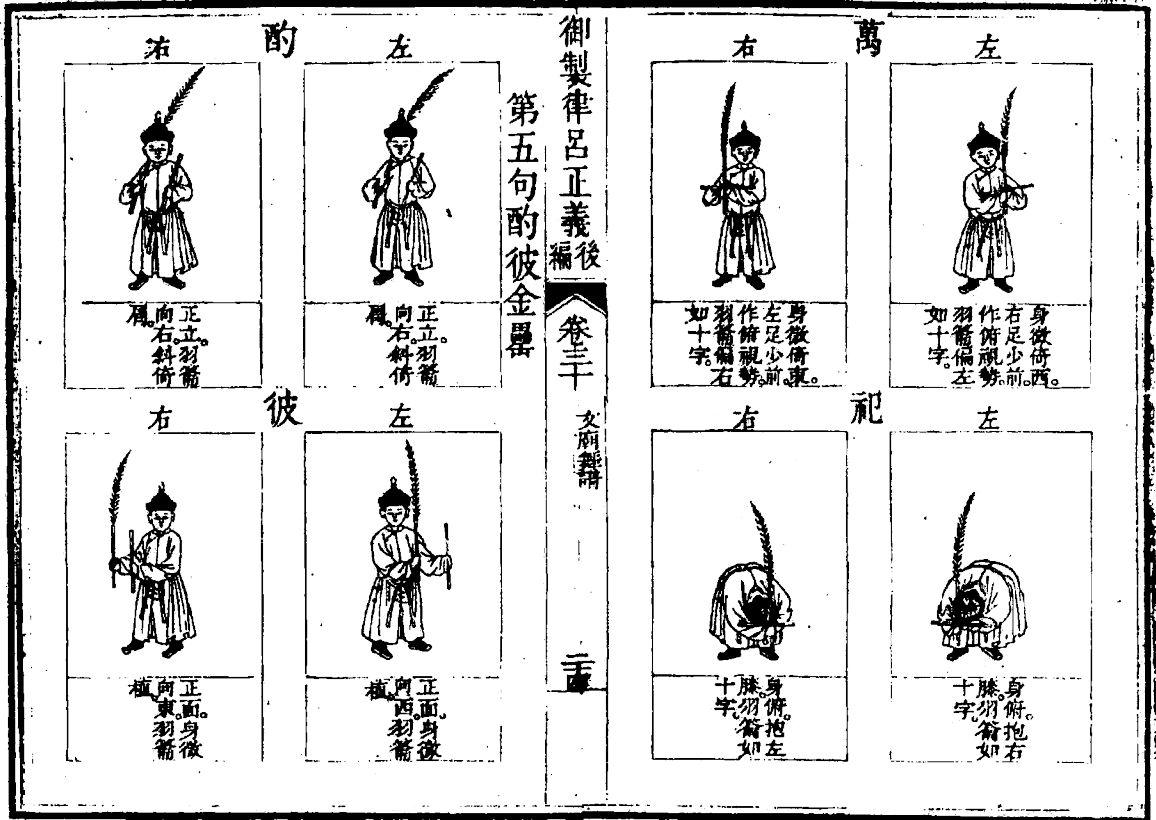 萬
左
身微倚西。
右足少前。
作俯視勢。
羽籥偏左
如十字。
右
身微倚東。
左足少前。
作俯視勢。
羽籥偏右
如十字。
祀
左
身俯。抱右
膝。羽籥如
十字。
右
身俯。抱左
膝。羽籥如
十字。
御製律呂正義後編
卷三十
文廟舞譜
第五句酌彼金罍
酌
左
正立。羽籥
向右。斜倚
肩。
右
正立。羽籥
向右。斜倚
肩。
彼
左
正面。身微
向西。羽籥
植。
右
正面。身微
向東。羽籥
植。